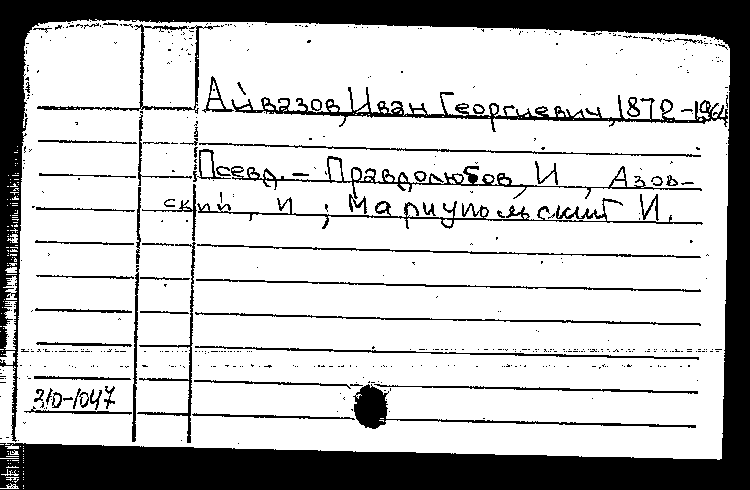 Айвазов, Иван Георгиевич, 1872-1964
Псевд. – Правдолюбов, И , Азов-
ский, И ; Мариупольский И.
310-1047